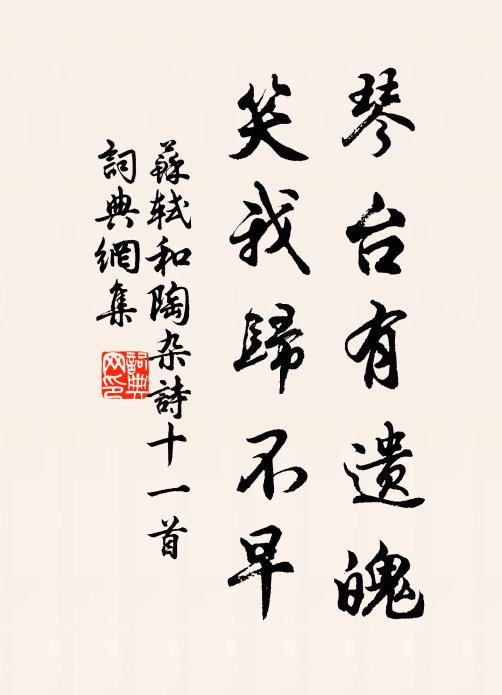 琴台有遗魄
笑我歸不早
蘇轼和陶杂詩十一首
詞典網集
詞典网印